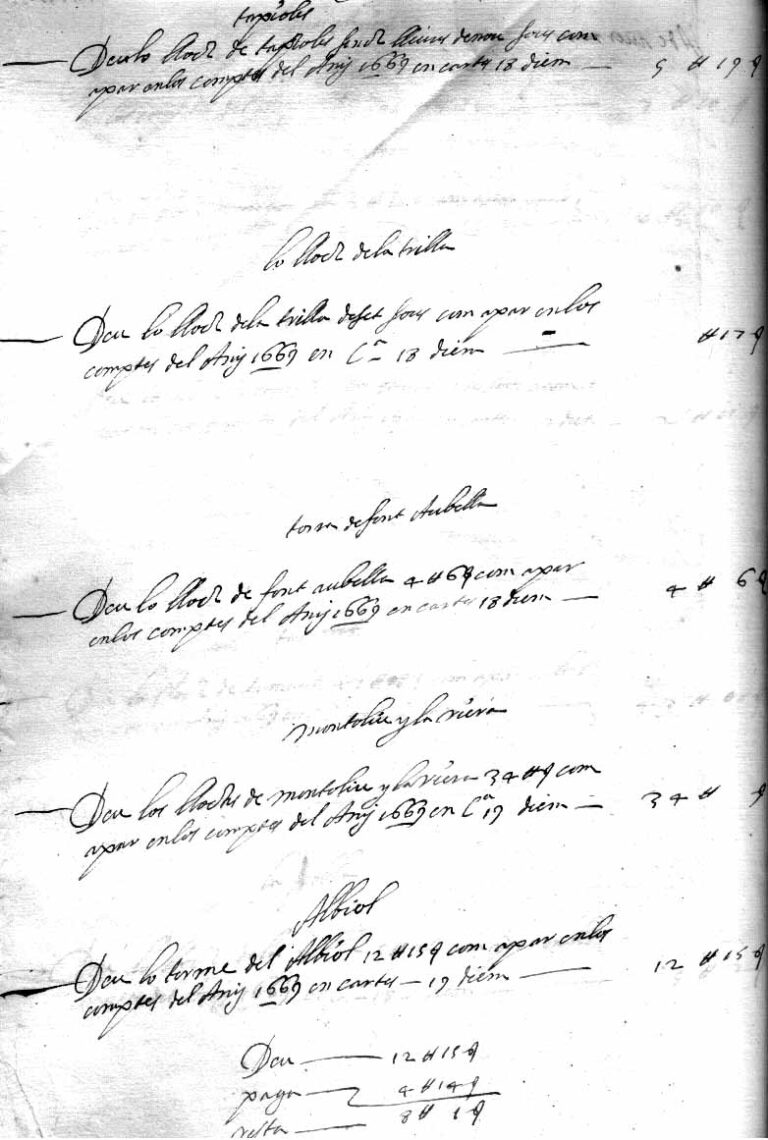 tapioles
Deu lo lloch de tapioles sinch lliures denou sous com
apar en los comptes del Any 1669 en cartes 18 diem — 5 ₶ 19 ſ
lo lloch de la trilla
Deu lo lloch de la trilla deset sous com apar en los
comptes del Any 1669 en Cᵃ 18 diem — ₶ 17 ſ
torra de font Aubella
Deu lo lloch de font aubella 4 ₶ 6 ſ com apar
en los comptes del Any 1669 en cartes 18 diem — 4 ₶ 6 ſ
montoliu y la riera
Deu los llochs de montoliu y la riera 34 ₶ ſ com
apar en los comptes del Any 1669 en Cᵃ 19 diem — 34 ₶ ſ
Albiol
Deu lo terme del Albiol 12 ₶ 15 ſ com apar en los
comptes del Any 1669 en cartes — 19 diem — 12 ₶ 15 ſ
Deu — 12 ₶ 15 ſ
paga — 4 ₶ 14 ſ
resta — 8 ₶ 1 ſ